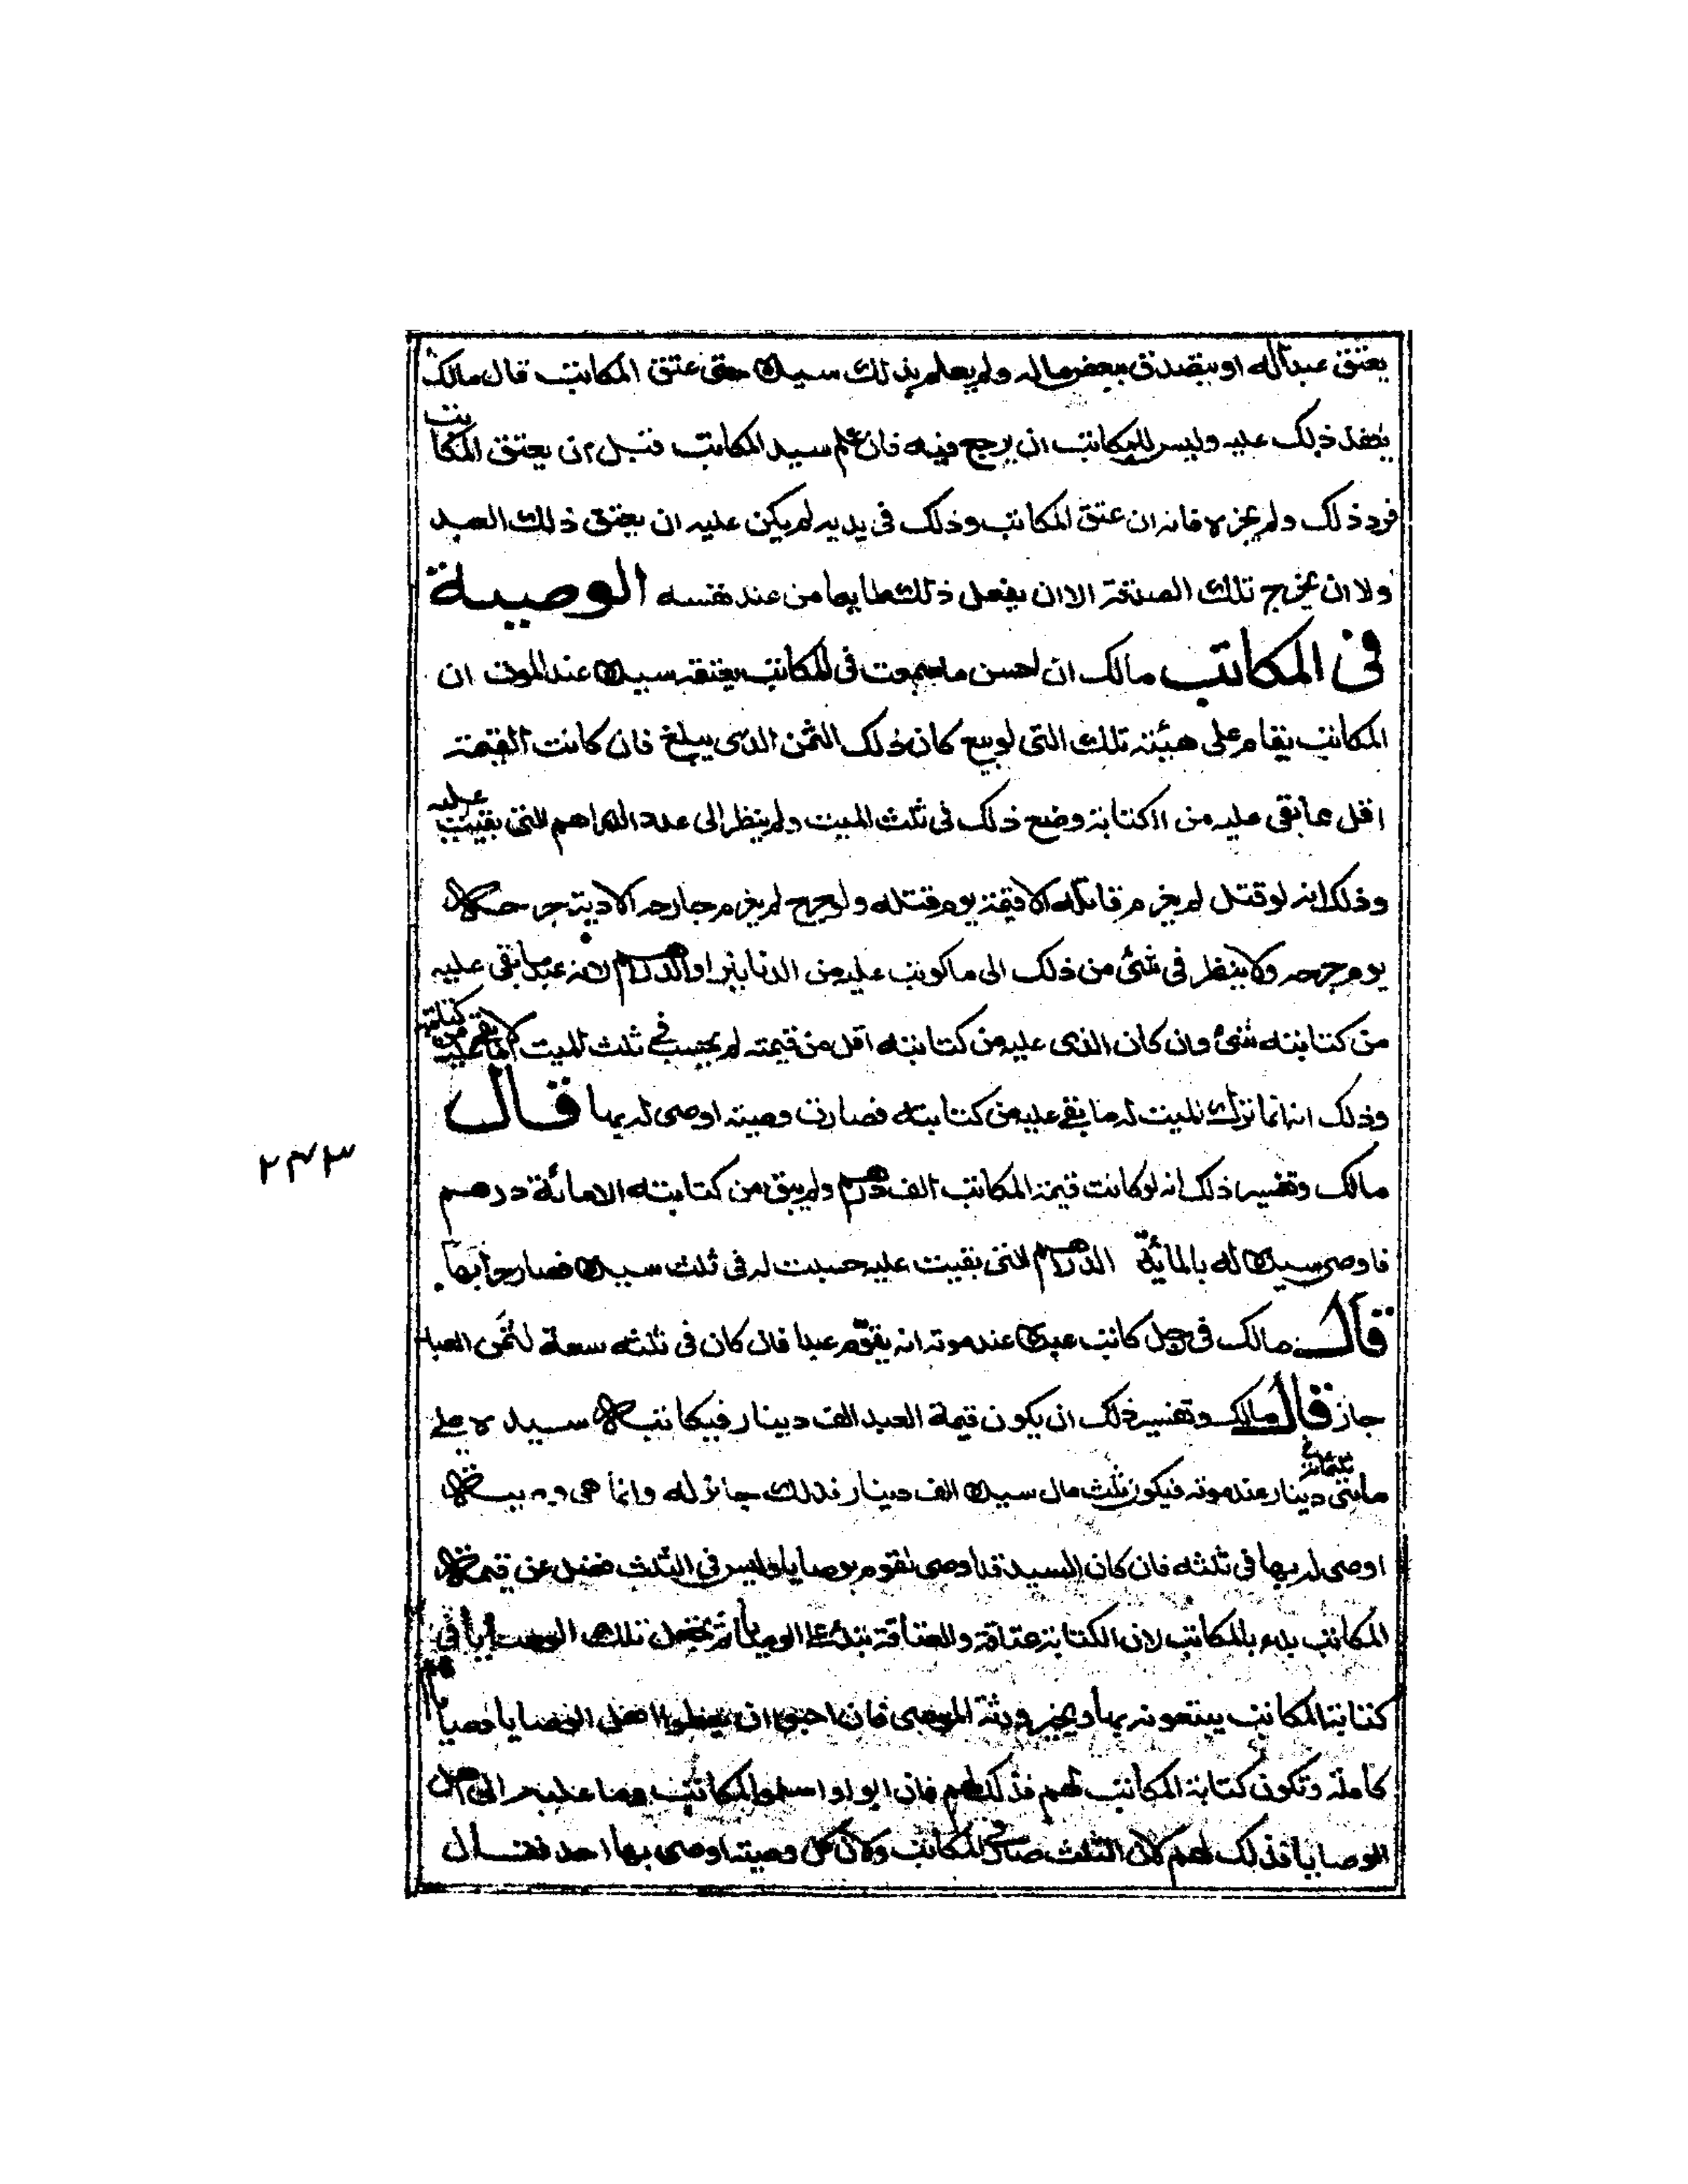 يعتق عبدا له او يتصدق ببعض ماله ولم يعلم بذلك سيده حتى عتق المكاتب قال مالك
ينفذ ذلك عليه وليس للمكاتب ان يرجع فيه فان علم سيد المكاتب قبل ان يعتق المكاتب
فرد ذلك ولم يجزه فانه ان عتق المكاتب وذلك في يديه لم يكن عليه ان يعتق ذلك العبد
ولا ان يخرج تلك الصدقة الا ان يفعل ذلك طايعا من عند نفسه الوصية
في المكاتب مالك ان احسن ما سمعت في المكاتب يعتقه سيده عند الموت ان
المكاتب يقام على هيئته تلك التي لو بيع كان ذلك الثمن الذي يبلغ فان كانت القيمة
اقل مما بقي عليه من الكتابة وضع ذلك في ثلث الميت ولم ينظر الى عدد الدراهم التي بقيت عليه
وذلك انه لو قتل لم يغرم قاتله الا قيمته يوم قتله ولو جرح لم يغرم جارحه الا دية جرحه
يوم جرحه ولا ينظر في شئ من ذلك الى ما كوتب عليه من الدنانير او الدراهم لانه عبد ما بقي عليه
من كتابته شئ وان كان الذي عليه من كتابته اقل من قيمته لم يحسب في ثلث الميت الا ما بقي عليه من كتابته
وذلك انه انما ترك الميت له ما بقي عليه من كتابته فصارت وصية اوصى له بها قال
مالك وتفسير ذلك انه لو كانت قيمة المكاتب الف درهم ولم يبق من كتابته الا مائة درهم
فاوصى سيده له بالمائة الدرهم التي بقيت عليه حسبت له في ثلث سيده فصار حرا بها
قال مالك في رجل كاتب عبده عند موته انه يقوم عبدا فان كان في ثلثه سعة لثمن العبد
جاز قال مالك وتفسير ذلك ان يكون قيمة العبد الف دينار فيكاتبه سيده على
مايتي دينار عند موته فيكون ثلث مال سيده الف دينار فذلك جائز له وانما هي وصية
اوصى له بها في ثلثه فان كان السيد قد اوصى لقوم بوصايا وليس في الثلث فضل عن قيمة
المكاتب بدء بالمكاتب لان الكتابة عتاقة والعتاقة تبتدئ على الوصايا ثم تجعل تلك الوصايا في
كتابة المكاتب يبتعونه بها ويخير ورثة الموصي فان احبوا ان يعطوا اهل الوصايا وصاياهم
كاملة وتكون كتابة المكاتب لهم فذلك لهم فان ابوا واسلموا المكاتب وما عليه الى اهل
الوصايا فذلك لهم لان الثلث صار في المكاتب ولان كل وصية اوصى بها احد فقال
٢٧٣